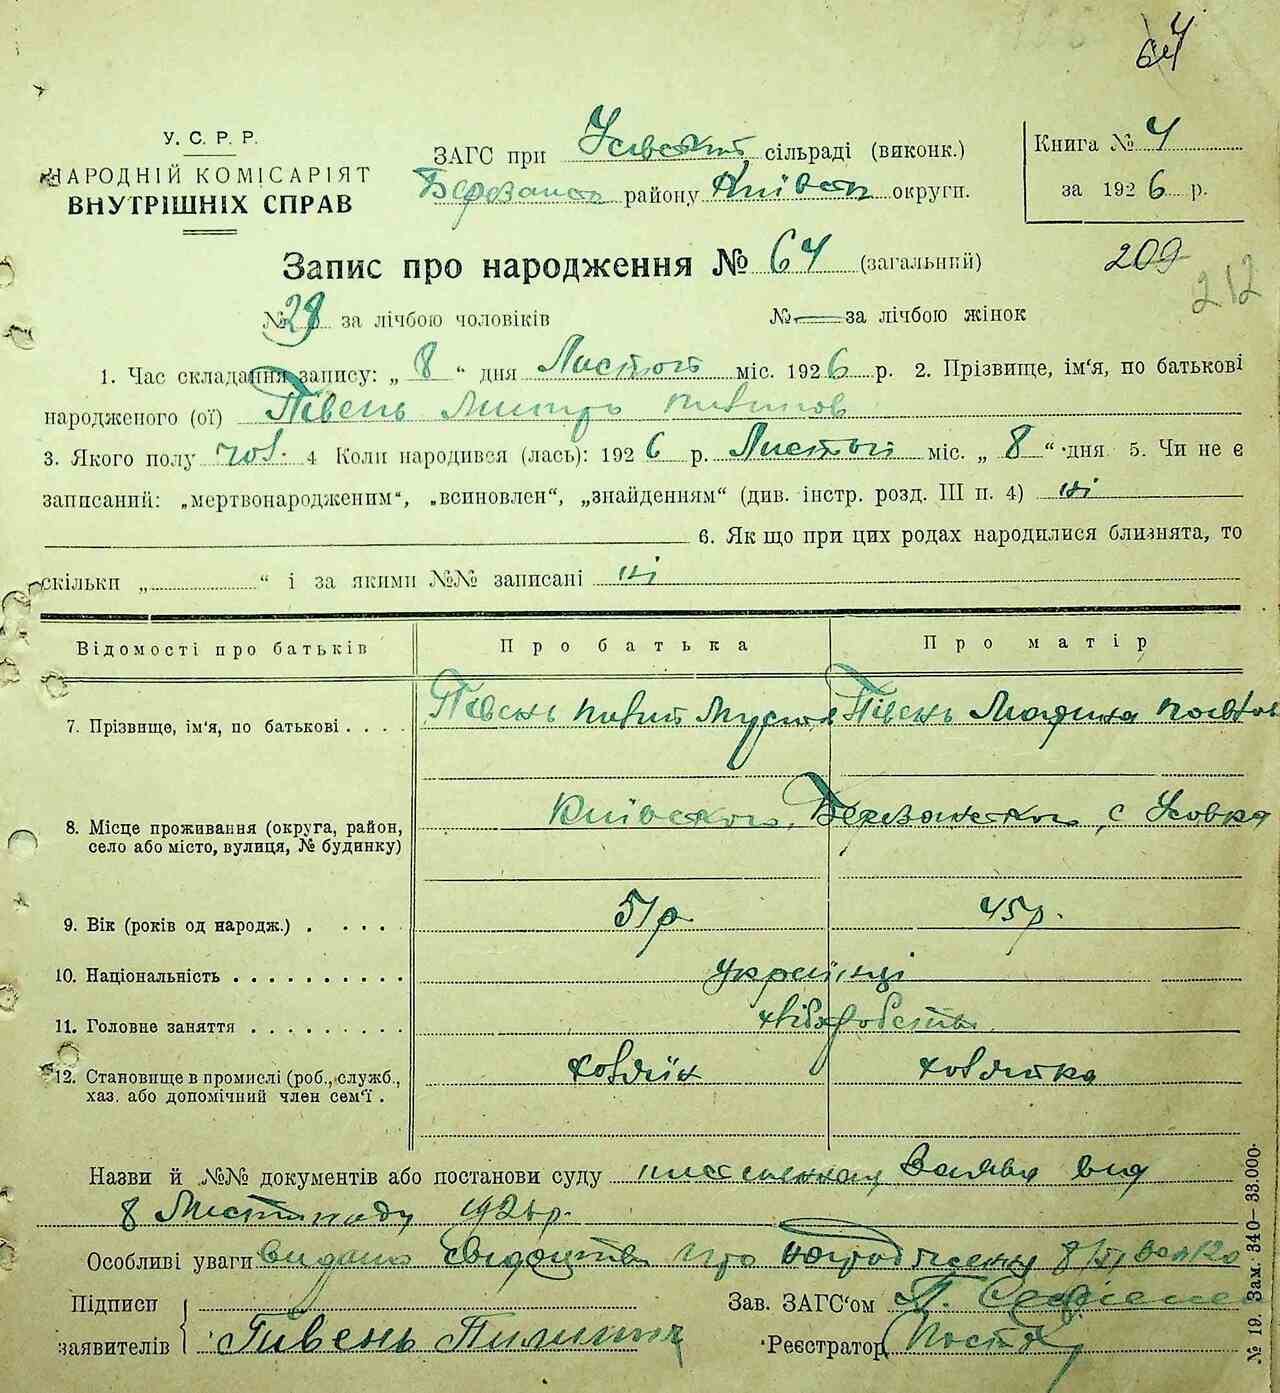 64
У. С. Р. Р.
НАРОДНІЙ КОМІСАРІЯТ
ВНУТРІШНІХ СПРАВ
ЗАГС при Усівській сільраді (виконк.)
Березансь району Київсь округи.
Книга № 4
за 1926 р.
Запис про народження № 64 (загальний)
209
212
№ 28 за лічбою чоловіків № — за лічбою жінок
1. Час складання запису: „ 8 “ дня Листоп міс. 1926 р. 2. Прізвище, ім‘я, по батькові
народженого (ої) Півень
3. Якого полу чов. 4 Коли народився (лась): 1926 р. Листоп міс. „ 8 “ дня 5. Чи не є
записаний: „мертвонародженим“, „всиновлен“, „знайденням“ (див. інстр. розд. III п. 4) ні
6. Як що при цих родах народилися близнята, то
скільки „ “ і за якими №№ записані ні
Відомості про батьків Про батька Про матір
7. Прізвище, ім‘я, по батькові . . . . Півень Півень
8. Місце проживання (округа, район, село або місто, вулиця, № будинку) Київского, Березанського, с Усовка
9. Вік (років од народж.) . . . . . 51р. 45р.
10. Національність . . . . . . . . . . українці
11. Головне заняття . . . . . . . . . хліборобств
12. Становище в промислі (роб., служб.,
хаз. або допомічний член сем‘ї . хазяїн хазяйка
Назви й №№ документів або постанови суду заява від
8 Листопаду 1926р.
Особливі уваги видано свідоцтво про народження
Підписи
заявителів Півень Пилип
Зав. ЗАГС‘ом
Реєстратор
№ 19. Зам. 340—33.000.